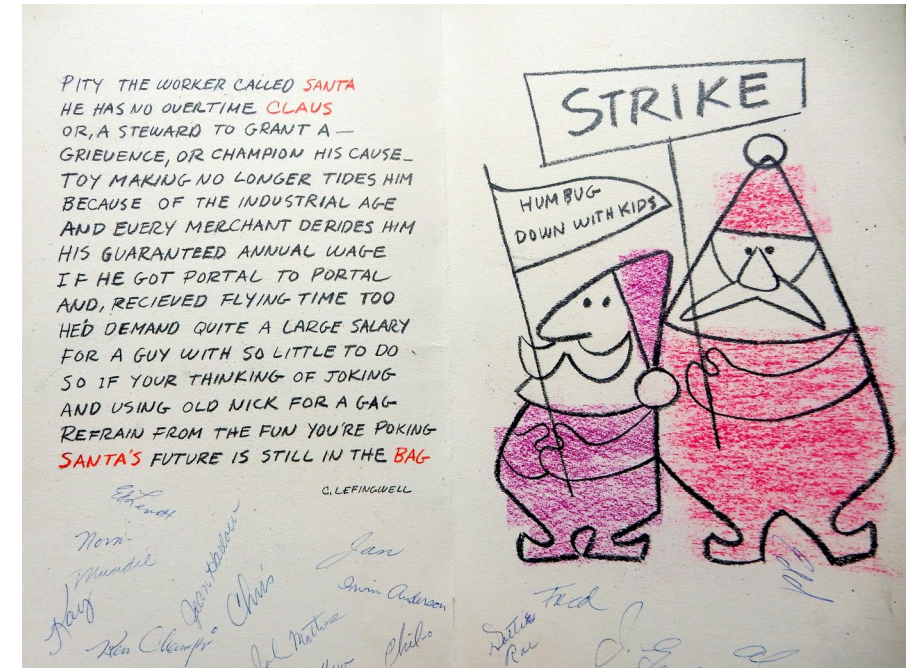 PITY THE WORKER CALLED SANTA
HE HAS NO OVERTIME CLAUS
OR, A STEWARD TO GRANT A —
GRIEVENCE, OR CHAMPION HIS CAUSE_
TOY MAKING NO LONGER TIDES HIM
BECAUSE OF THE INDUSTRIAL AGE
AND EVERY MERCHANT DERIDES HIM
HIS GUARANTEED ANNUAL WAGE
IF HE GOT PORTAL TO PORTAL
AND, RECIEVED FLYING TIME TOO
HE'D DEMAND QUITE A LARGE SALARY
FOR A GUY WITH SO LITTLE TO DO
SO IF YOUR THINKING OF JOKING
AND USING OLD NICK FOR A GAG
REFRAIN FROM THE FUN YOU'RE POKING
SANTA'S FUTURE IS STILL IN THE BAG
C. LEFINGWELL
Norm
Mundie
Jean Harlow
Chris
Jan
Irvin Anderson
Kay
Ken
John Mathos
Phil
STRIKE
HUMBUG
DOWN WITH KIDS
Fred
Dottie
Rae